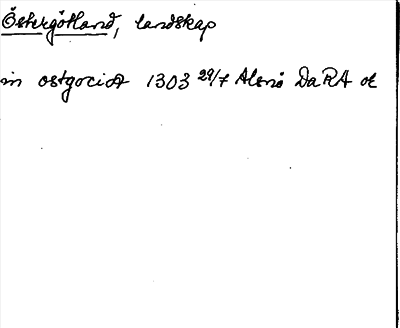 Östergötland, landskap
in ostgocia 1303 29/7 Alsnö DaRA or